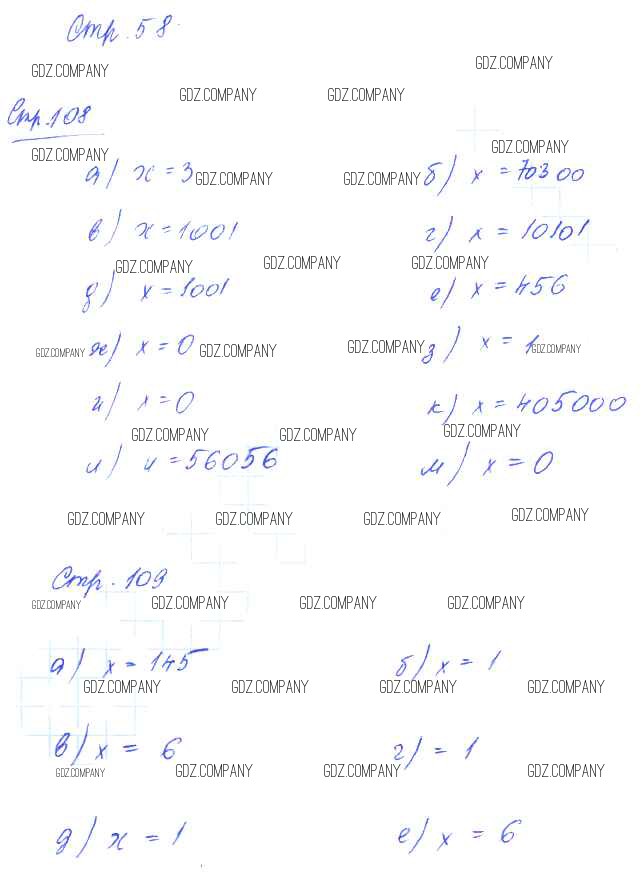 Стр. 58.
GDZ.COMPANY GDZ.COMPANY
GDZ.COMPANY GDZ.COMPANY
Стр. 108
GDZ.COMPANY GDZ.COMPANY
а) x = 3 GDZ.COMPANY GDZ.COMPANY б) x = 70300
в) x = 1001 г) x = 10101
GDZ.COMPANY GDZ.COMPANY GDZ.COMPANY
д) x = 1001 е) x = 456
GDZ.COMPANY ж) x = 0 GDZ.COMPANY GDZ.COMPANY з) x = 1 GDZ.COMPANY
и) x = 0 к) x = 405000
GDZ.COMPANY GDZ.COMPANY GDZ.COMPANY
л) x = 56056 м) x = 0
GDZ.COMPANY GDZ.COMPANY GDZ.COMPANY GDZ.COMPANY
Стр. 109
GDZ.COMPANY GDZ.COMPANY GDZ.COMPANY GDZ.COMPANY
а) x = 145 б) x = 1
GDZ.COMPANY GDZ.COMPANY GDZ.COMPANY GDZ.COMPANY
в) x = 6 г) = 1
GDZ.COMPANY GDZ.COMPANY GDZ.COMPANY GDZ.COMPANY
д) x = 1 е) x = 6